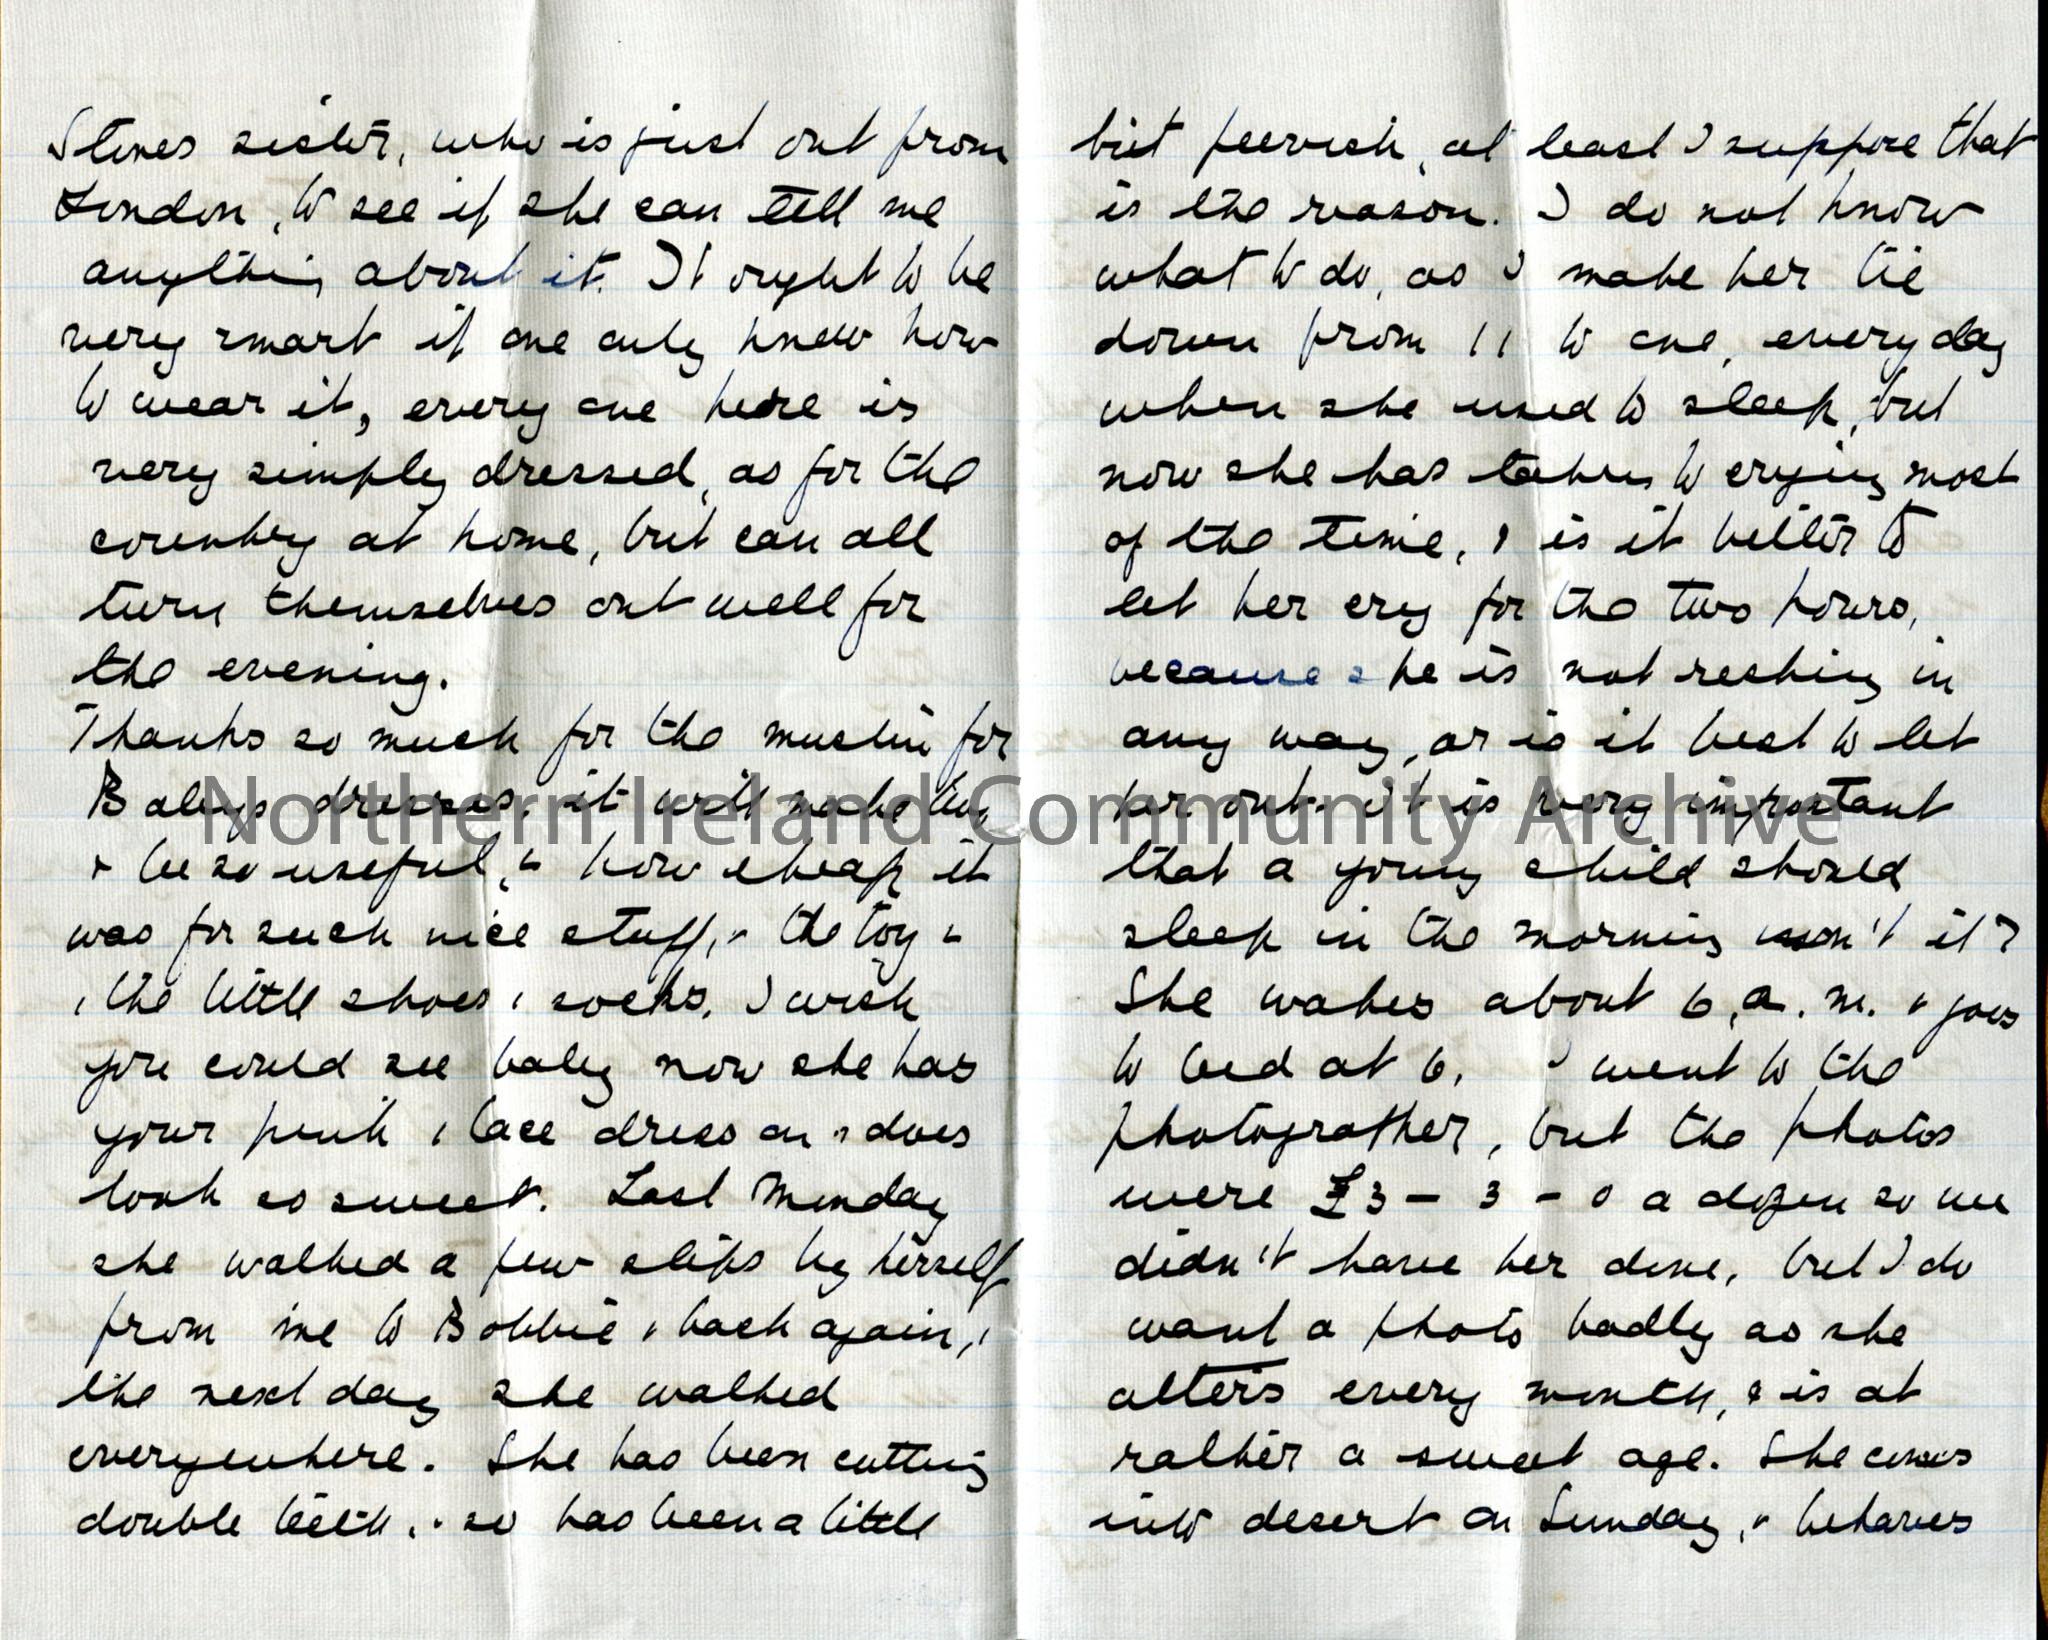 Stones sister, who is just out from
London, to see if she can tell me
anything about it. It ought to be
very smart if one only knew how
to wear it, every one here is
very simply dressed, as for the
country at home, but can all
turn themselves out well for
the evening.
Thanks so much for the muslin for
Babys dresses, it will make
& be so useful, & how cheap it
was for such nice stuff, & the toy &
& the little shoes & socks. I wish
you could see baby now she has
your pink & lace dress on & does
look so sweet. Last Monday
she walked a few steps by herself
from me to Bobbie & back again, &
the next day she walked
everywhere. She has been cutting
double teeth, & so has been a little
bit peevish, at least I suppose that
is the reason. I do not know
what to do, as I make her lie
down from 11 to one, every day
when she used to sleep, but
now she has taken to crying most
of the time, & is it better to
let her cry for the two hours,
because she is not resting in
any way, or is it best to let
her out. It is very important
that a young child should
sleep in the morning isn't it?
She wakes about 6, a.m. & goes
to bed at 6. I went to the
photographer, but the photos
were £3 - 3 - 0 a dozen so we
didn't have her done, but I do
want a photo badly as she
alters every month, & is at
rather a sweet age. She comes
into desert on Sunday, & behaves
Northern Ireland Community Archive